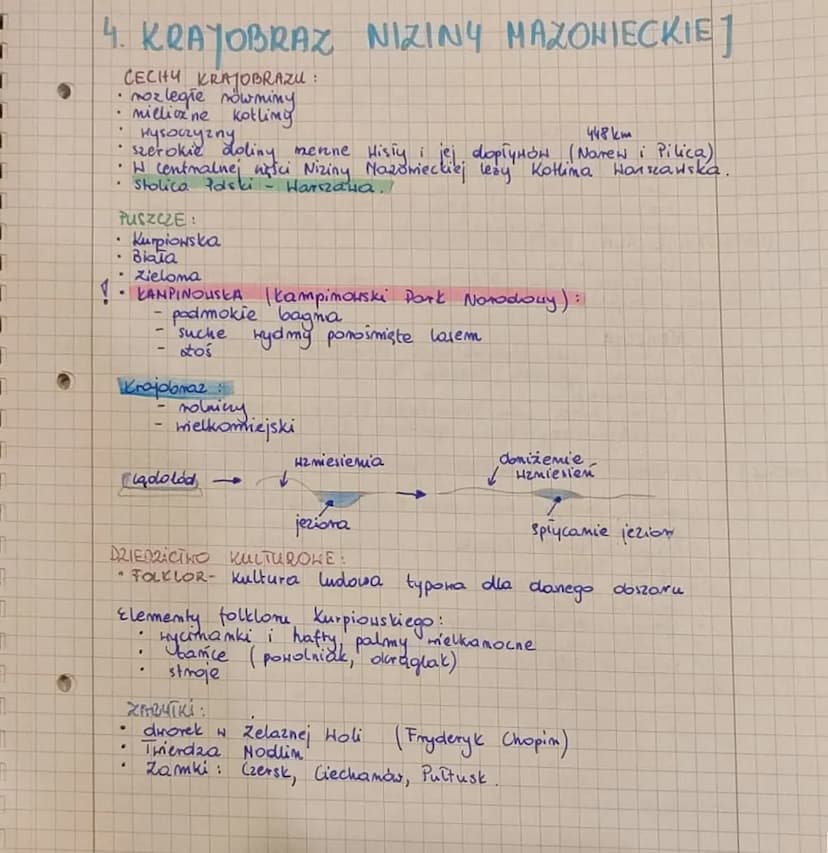 4. KRAJOBRAZ NIZINY MAZOWIECKIEJ
CECHY KRAJOBRAZU:
· rozległe równiny
· nieliczne kotliny
· wysoczyzny
448 km
· szerokie doliny rzeczne Wisły i jej dopływów (Narew i Pilica)
· W centralnej części Niziny Mazowieckiej leży Kotlina Warszawska.
· Stolica Polski - Warszawa.
PUSZCZE:
· Kurpiowska
· Biała
· Zielona
! · KAMPINOWSKA (Kampinowski Park Narodowy):
- podmokłe bagna
- suche wydmy porośnięte lasem
- łoś
Krajobraz:
- rolniczy
- wielkomiejski
Lądolód → wzniesienia → obniżenie wzniesień
jeziora spłycanie jezior
DZIEDZICTWO KULTUROWE:
· FOLKLOR - kultura ludowa typowa dla danego obszaru
Elementy folkloru Kurpiowskiego:
· wycinanki i hafty, palmy wielkanocne
· tańce (powolniak, okrąglak)
· stroje
ZABYTKI:
· dworek w Żelaznej Woli (Fryderyk Chopin)
· Twierdza Modlin
· Zamki: Czersk, Ciechanów, Pułtusk.